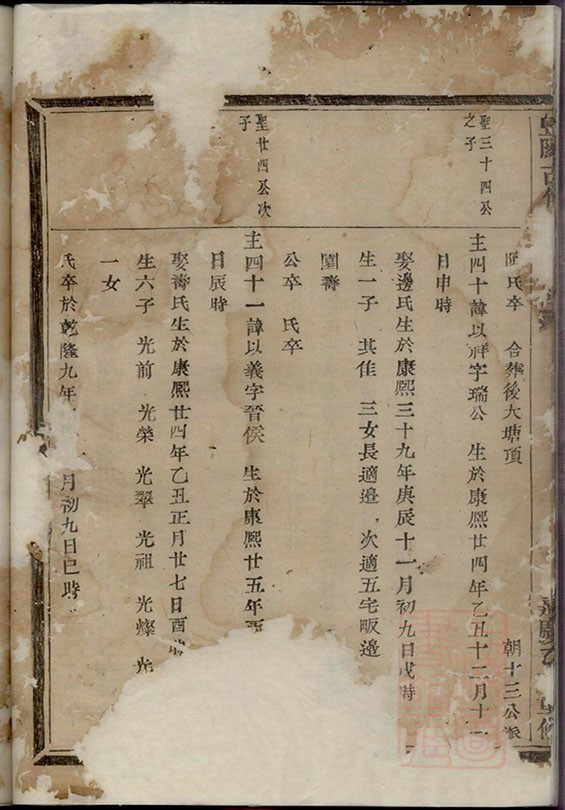 陳氏卒 合葬後大塘頂 朝十三公派
聖三十四公
之子
主四十諱以祥字瑞公 生於康熙廿四年乙丑十二月十一
日申時
娶邊氏生於康熙三十九年庚辰十一月初九日戌時
生一子 其佳 三女長適邊 次適五宅畈邊
園壽
公卒 氏卒
聖廿四公次
子
主四十一諱以義字晉侯 生於康熙廿五年
日辰時
娶壽氏生於康熙廿四年乙丑正月廿七日酉時
生六子 光前 光榮 光翠 光祖 光燦 光
一女
氏卒於乾隆九年 月初九日巳時